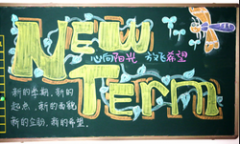 New
心向阳光 放飞希望
Term
新的学期,新的
起点,新的面貌
新的立场,新的希望。